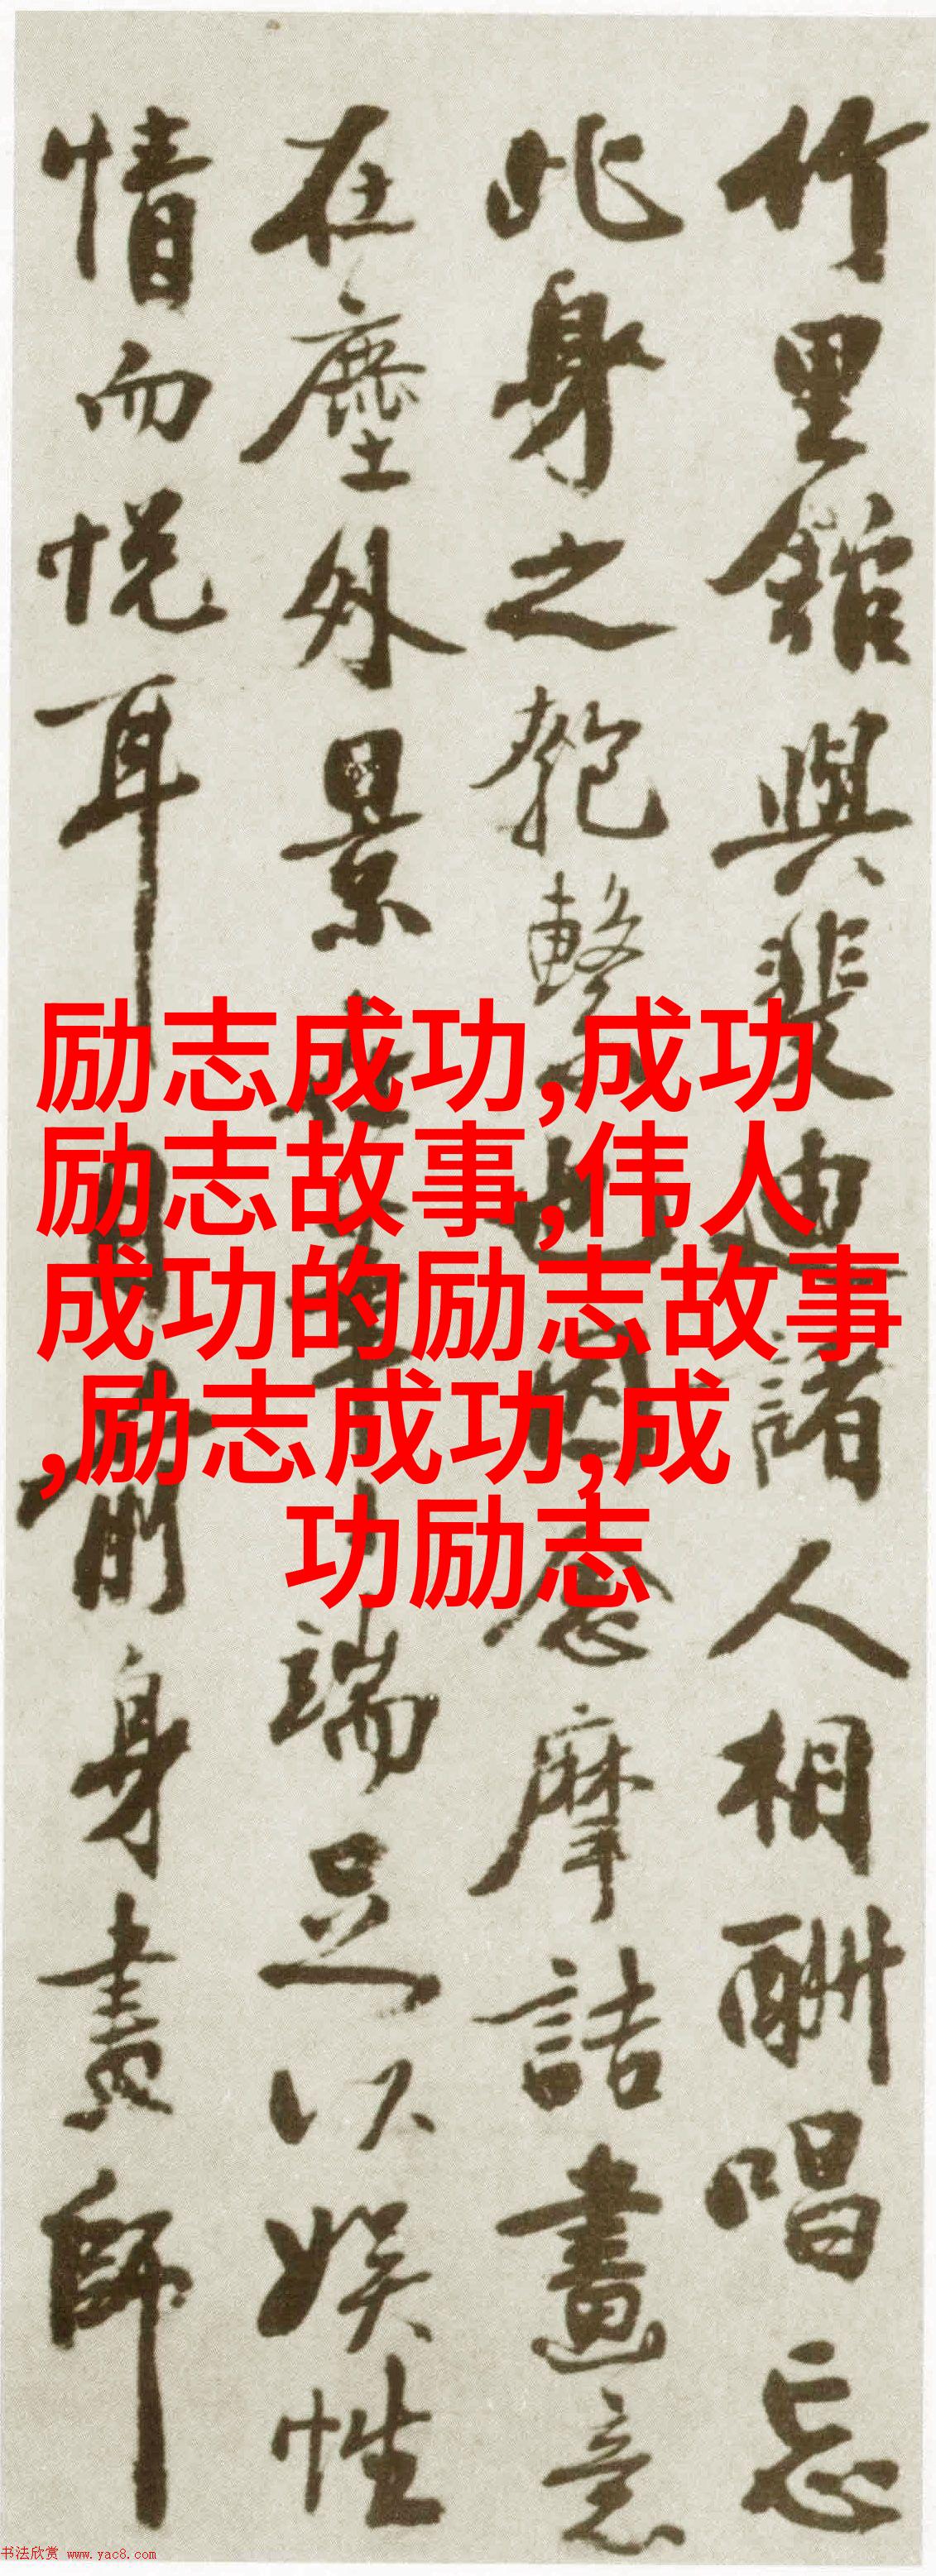 竹里館與裴迪諸人相酬唱忘
此身之匏繫也因念摩詰畫意
在塵外景在筆端足以娛性
情而悅耳目前身畫師
励志成功,成功
励志故事,伟人
成功的励志故事
,励志成功,成
功励志
书法欣赏 www.yac8.com